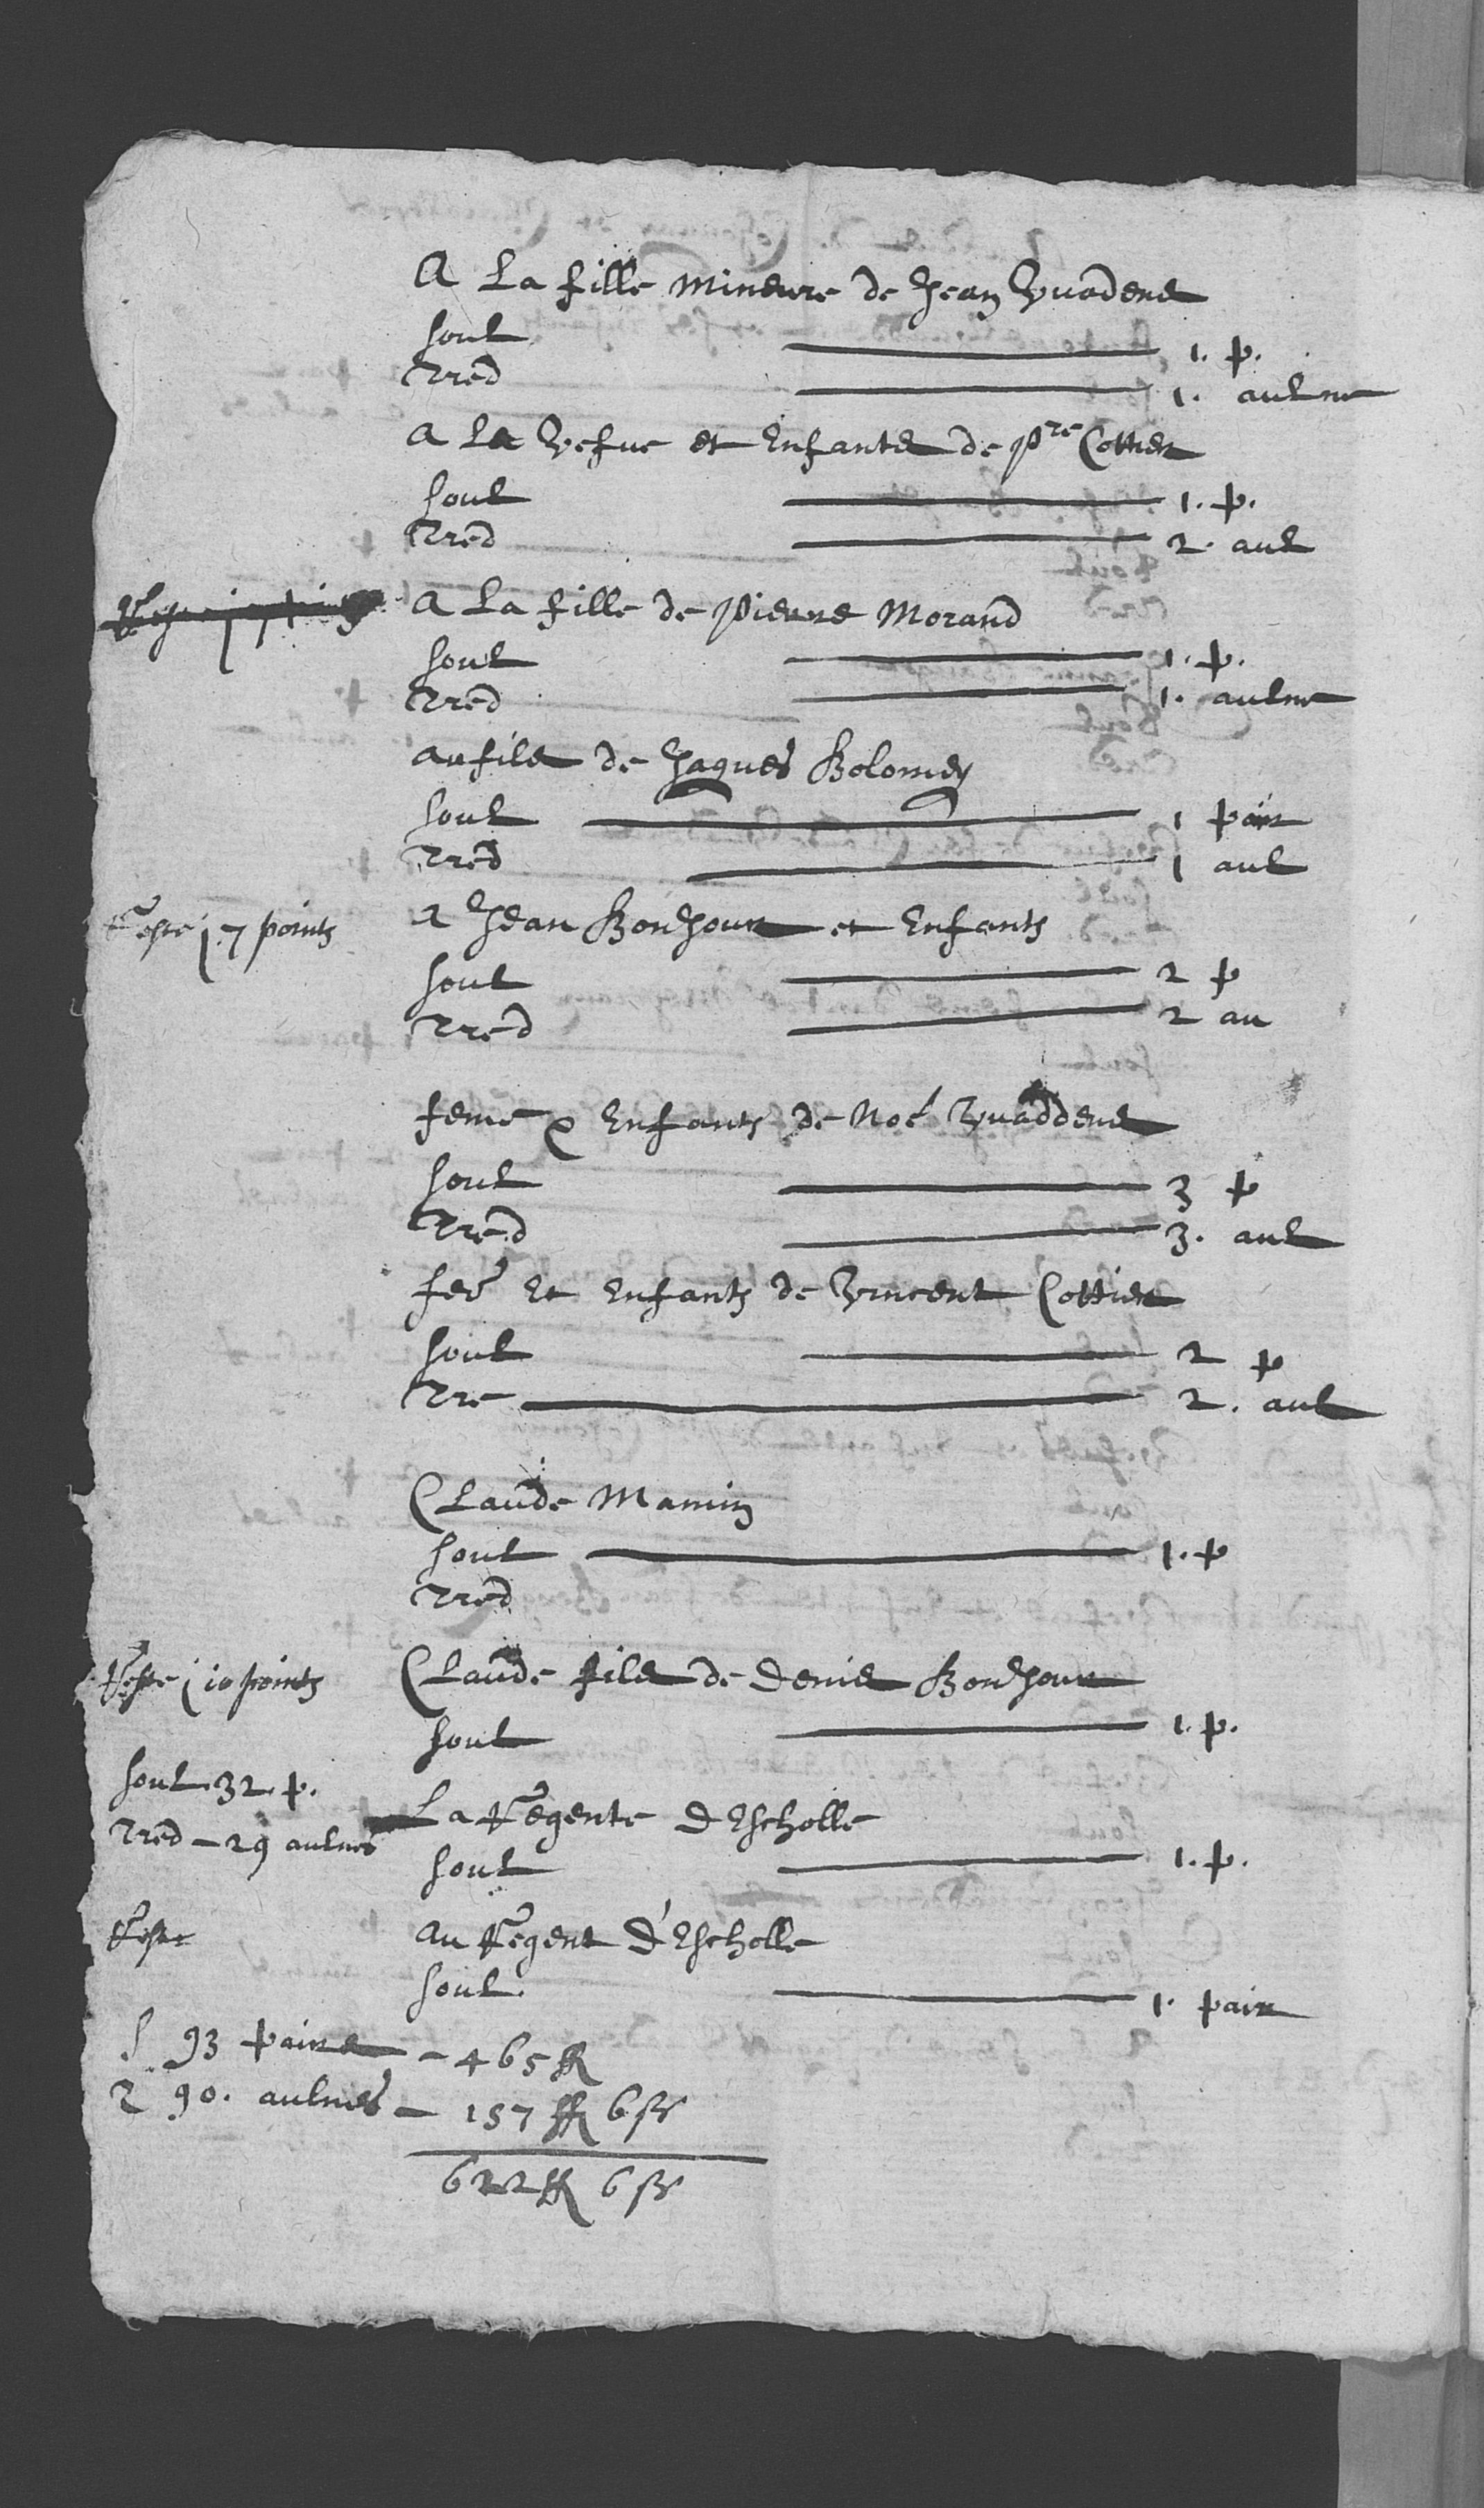 A La fille mineure de Jean Vuadens
soul 1. p.
Tred 1. aulne
a la Vefue et Enfants de Pre Cottier
soul 1. p.
Tred 2. aul
a La fille de Pierre Morand
soul 1. p.
Tred 1. aulne
au fils de Jaques Bolomey
soul 1 pair
Tred 1 aul
Reste j 7 points
a Jean Bonjour et Enfants
soul 2 p
Tred 2 au
feme & Enfants de Noé Vuaddens
soul 3 p
Tred 3. aul
fee Et Enfants de Vincent Cottier
soul 2 p
Tre 2. aul
Claude Mamin
soul 1. p
Tred
Reste j 10 points
Claude fils de Denis Bonjour
soul 1. p.
soul. 32. p.
Tred - 29 aulnes
La Regente d Escholle
soul 1. p.
Reste
au Regent d'Escholle
soul. 1. pair
S 93 pairs - 465 ff
T 90. aulnes - 157 ff 6 ss
622 ff 6 ss